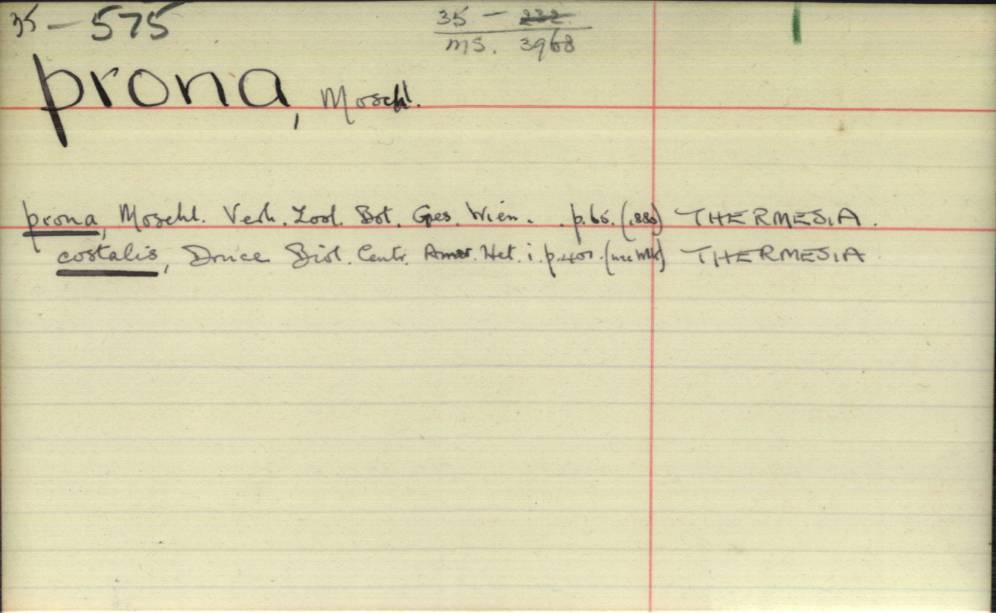 35 — 575
35 — 232
MS. 3968
prona, Moschl.
prona, Moschl. Verh. Zool. Bot. Ges. Wien. p. (1880) THERMESIA.
costalis, Druce Biol. Centr. Amer. Het. i. p. 401. (nec Wlk) THERMESIA